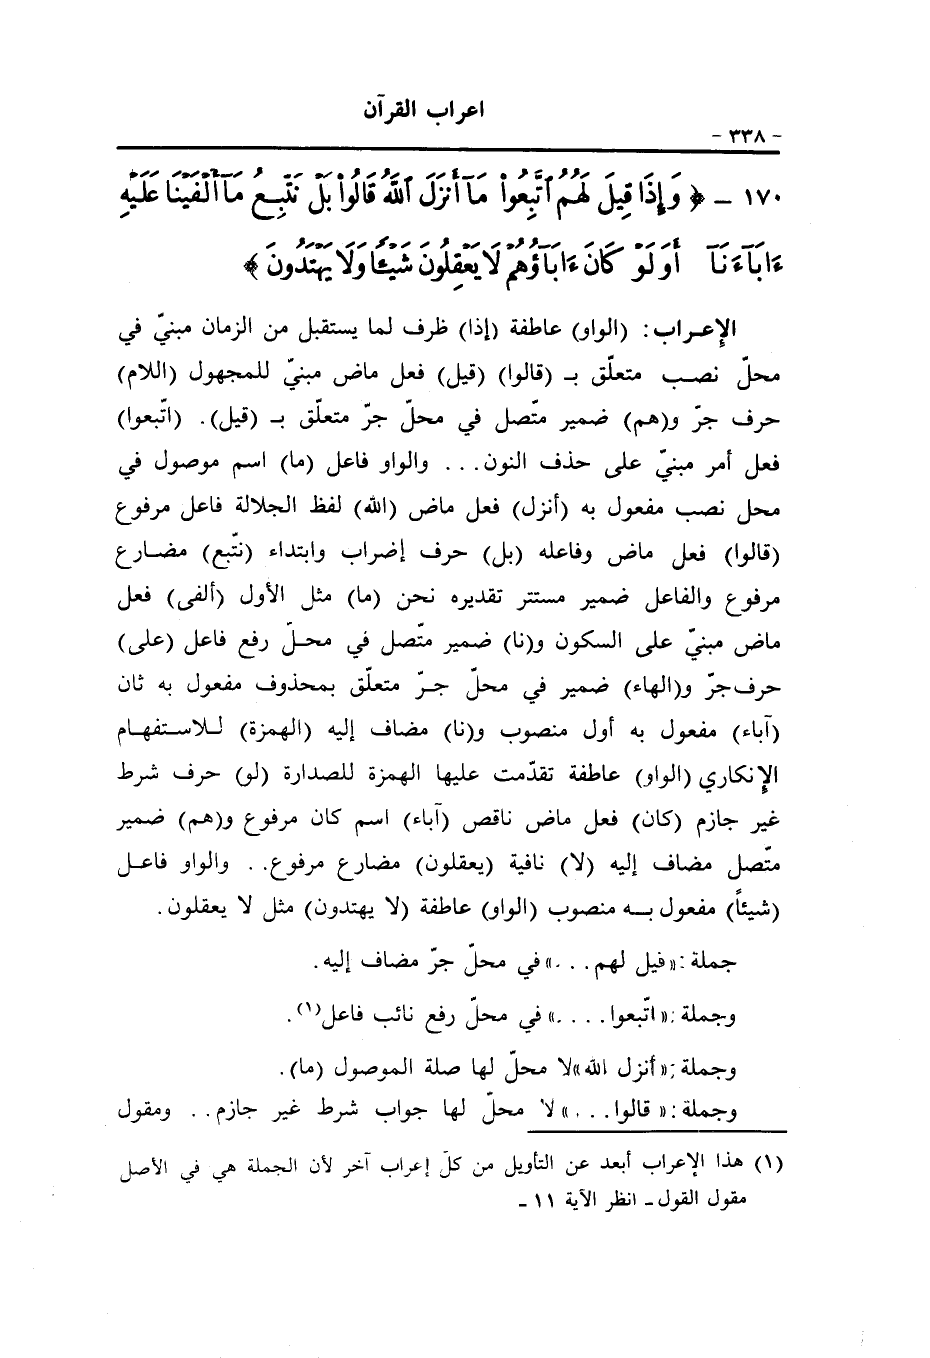 اعراب القرآن
- ٣٣٨ -
١٧٠ - ﴿ وَإِذَا قِيلَ لَهُمُ ٱتَّبِعُوا۟ مَآ أَنزَلَ ٱللَّهُ قَالُوا۟ بَلْ نَتَّبِعُ مَآ أَلْفَيْنَا عَلَيْهِ
ءَابَآءَنَآ أَوَلَوْ كَانَ ءَابَآؤُهُمْ لَا يَعْقِلُونَ شَيْـًٔا وَلَا يَهْتَدُونَ ﴾
الإعراب: (الواو) عاطفة (إذا) ظرف لما يستقبل من الزمان مبنيّ في
محلّ نصب متعلّق بـ (قالوا) (قيل) فعل ماض مبنيّ للمجهول (اللام)
حرف جرّ و(هم) ضمير متّصل في محلّ جرّ متعلّق بـ (قيل). (اتّبعوا)
فعل أمر مبنيّ على حذف النون... والواو فاعل (ما) اسم موصول في
محل نصب مفعول به (أنزل) فعل ماض (الله) لفظ الجلالة فاعل مرفوع
(قالوا) فعل ماض وفاعله (بل) حرف إضراب وابتداء (نتّبع) مضارع
مرفوع والفاعل ضمير مستتر تقديره نحن (ما) مثل الأول (ألفى) فعل
ماض مبنيّ على السكون و(نا) ضمير متّصل في محلّ رفع فاعل (على)
حرف جرّ و(الهاء) ضمير في محلّ جرّ متعلّق بمحذوف مفعول به ثان
(آباء) مفعول به أول منصوب و(نا) مضاف إليه (الهمزة) للاستفهام
الإنكاري (الواو) عاطفة تقدّمت عليها الهمزة للصدارة (لو) حرف شرط
غير جازم (كان) فعل ماض ناقص (آباء) اسم كان مرفوع و(هم) ضمير
متّصل مضاف إليه (لا) نافية (يعقلون) مضارع مرفوع.. والواو فاعل
(شيئاً) مفعول به منصوب (الواو) عاطفة (لا يهتدون) مثل لا يعقلون.
جملة: «قيل لهم...» في محلّ جرّ مضاف إليه.
وجملة: «اتّبعوا....» في محلّ رفع نائب فاعل(١).
وجملة: «أنزل الله» لا محلّ لها صلة الموصول (ما).
وجملة: «قالوا...» لا محلّ لها جواب شرط غير جازم.. ومقول
(١) هذا الإعراب أبعد عن التأويل من كلّ إعراب آخر لأن الجملة هي في الأصل
مقول القول - انظر الآية ١١ -